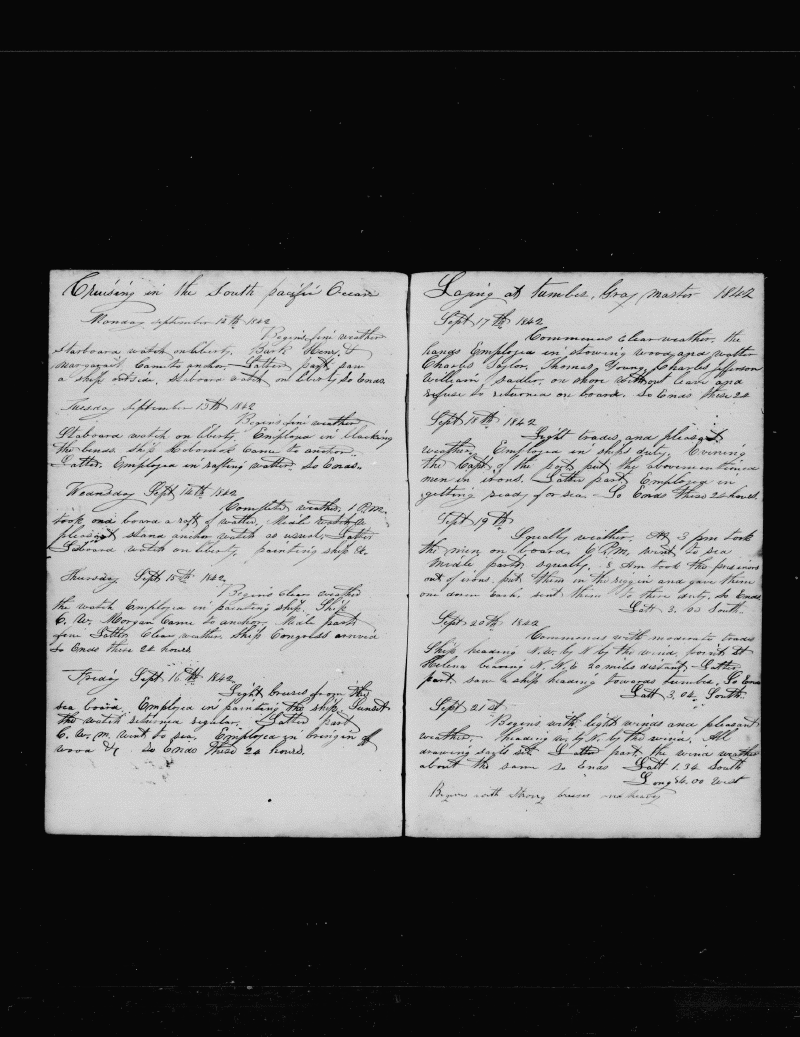 Cruising in the South pacific Ocean
Monday September 12th 1842
Begins fine weather
Starboard watch on liberty. Bark Henry &
Margarait Came to anchor. Latter part saw
a ship outside. Staboard watch on liberty So Ends.
Tuesday September 13th 1842
Begins fine weather
Staboard watch on liberty. Employed in blacking
the bends. ship Came to anchor.
Latter. Employed in rafting watter. So Ends.
Wednsday Sept 14th 1842
weather. 1 P.M.
took one board a raft of watter. Midle
pleasant stand anchor watch as usual. Latter
Laboard watch on liberty, painting ship &c.
Thursday Sept 15th 1842.
Begins Clear weather
the watch Employed in painting ship. Ship
C. W. Morgan Came to anchor. Midle part
fine Latter Clear weather Ship Congress arrived
So Ends these 24 hours
Friday Sept 16th 1842
Light breises from the
sea board. Employed in painting the ship. Sunset
the watch returned regular. Latter part
C. W. M. went to sea. Employed in bringen off
wood &c So Ends these 24 hours.
Laying at tumbes, Gray master 1842
Sept 17th 1842
Commences Clear weather, the
hands Employed in stowing wood and watter
Charles Taylor, Thomas Young, Charles Jefferson
William Sadler, on shore without leave and
refuse to returned on board. So Ends these 24
Sept 18th 1842
Light trades and pleasant
weather. Employed in ships duty. Evening
the Capt of the port put the abovementioned
men in irons. Latter part Employed in
getting ready for sea. So Ends these 24 hours.
Sept 19th
Squally weather. At 3 pm took
the men on board. 6 P.M. went to sea
Midle part squaly. 8 Am took the prisioners
out of irons. put them in the riggin and gave them
one dozen each. sent them to there duty. So Ends
Latt 3.03 South.
Sept 20th 1842
Commences with moderate trades
Ship heading N.W. by N by the wind, point St
Helena bearing N.N.E 20 miles distant. Latter
part saw a ship heading towards tumbes, So Ends
Latt 3.02 South
Sept 21st
Begins with light winds and pleasant
weather. heading W. by N. by the wind. All
drawing sayls set. Latter part the wind weather
about the same So Ends Latt 1.34 South
Long 84.00 West
Begins with Strong breises and heavey